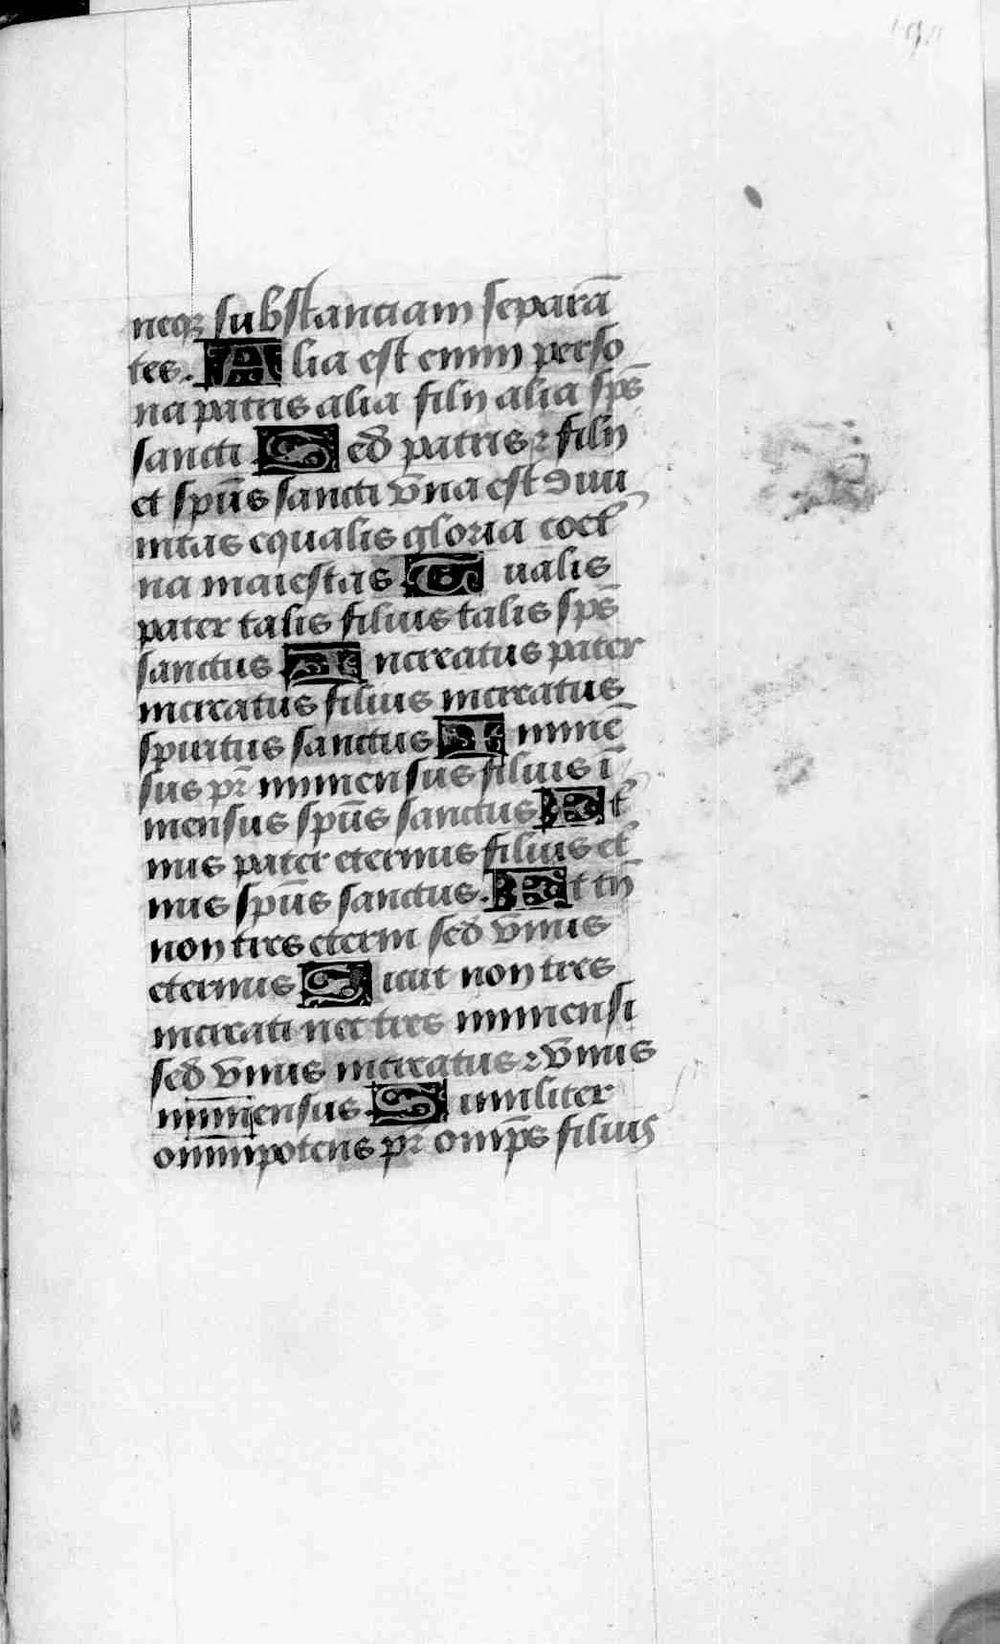 neqꝫ substanciam separā
tes. Alia est enim perso
na patris alia filii alia sp̄s
sancti Sed patris ⁊ filii
et sp̄us sancti vna est diui
nitas equalis gloria coet̄
na maiestas Qualis
pater talis filius talis sp̄s
sanctus Increatus pater
increatus filius increatus
spiritus sanctus Immē
sus pr̄ immensus filius ī
mensus sp̄us sanctus Et̄
nus pater eternus filius et̄
nus sp̄us sanctus. Et tn̄
non tres eterni sed vnus
eternus Sicut non tres
increati nec tres immensi
sed vnus increatus ⁊ vnus
immensus. Similiter
omnipotens pr̄ omp̄s filius